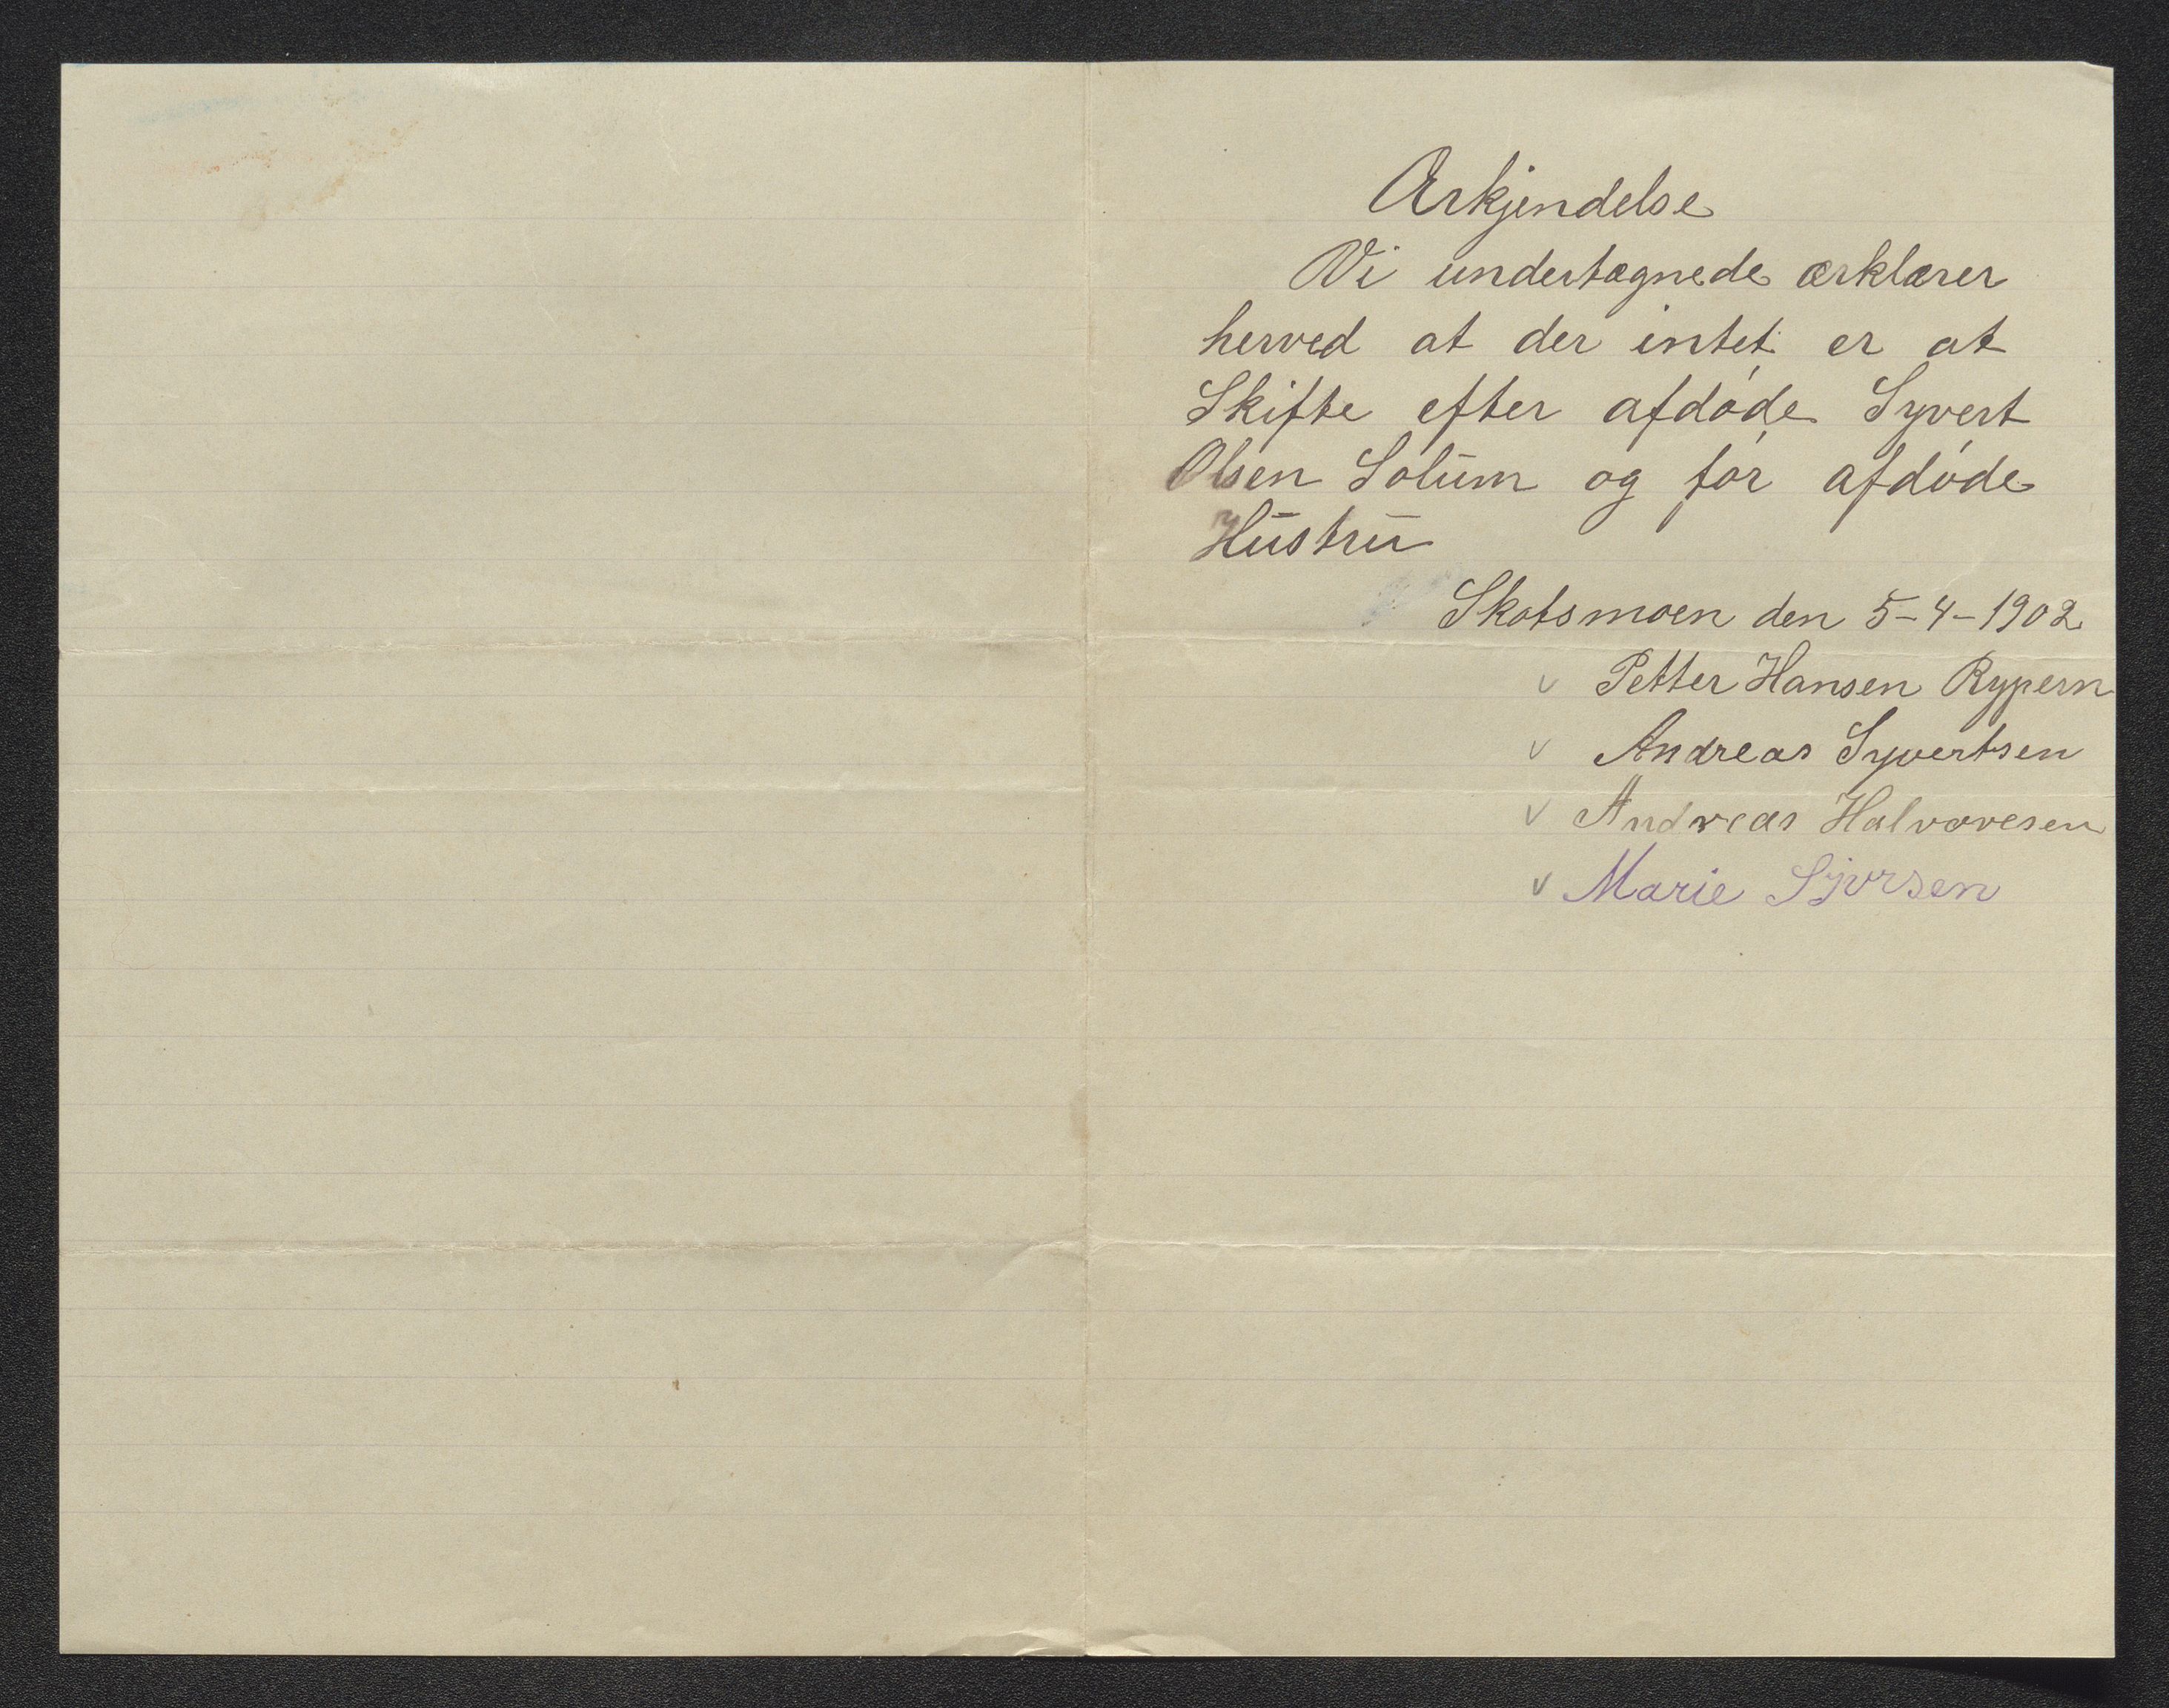 Ærkjendelse
Vi undertægnede ærklærer
herved at der intet er at
Skifte efter afdøde Syvert
Olsen Solum og før afdøde
Hustru
Skotsmoen den 5-4-1902
v Petter Hansen Rypern
v Andreas Syvertsen
v Andreas Halvoresen
v Marie Sjvrsen